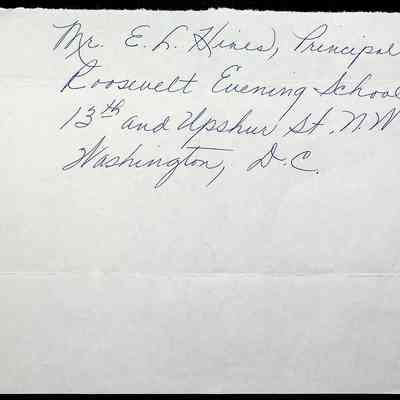 Mr. E. L. Hines, Principal
Roosevelt Evening School
13th and Upshur St. N.W
Washington, D.C.